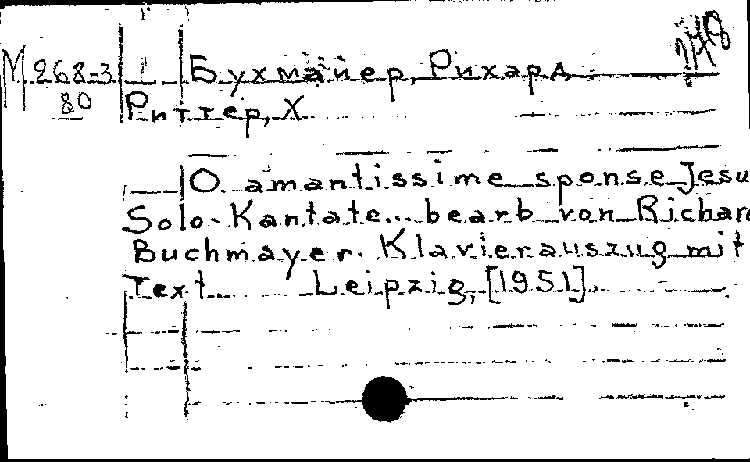 М 268-3 Бухмайер, Рихард
80 Риттер, Х.
O amantissime sponse Jesu
Solo-Kantate... bearb von Richar
Buchmayer. Klavierauszug mit
Text Leipzig, [1951].